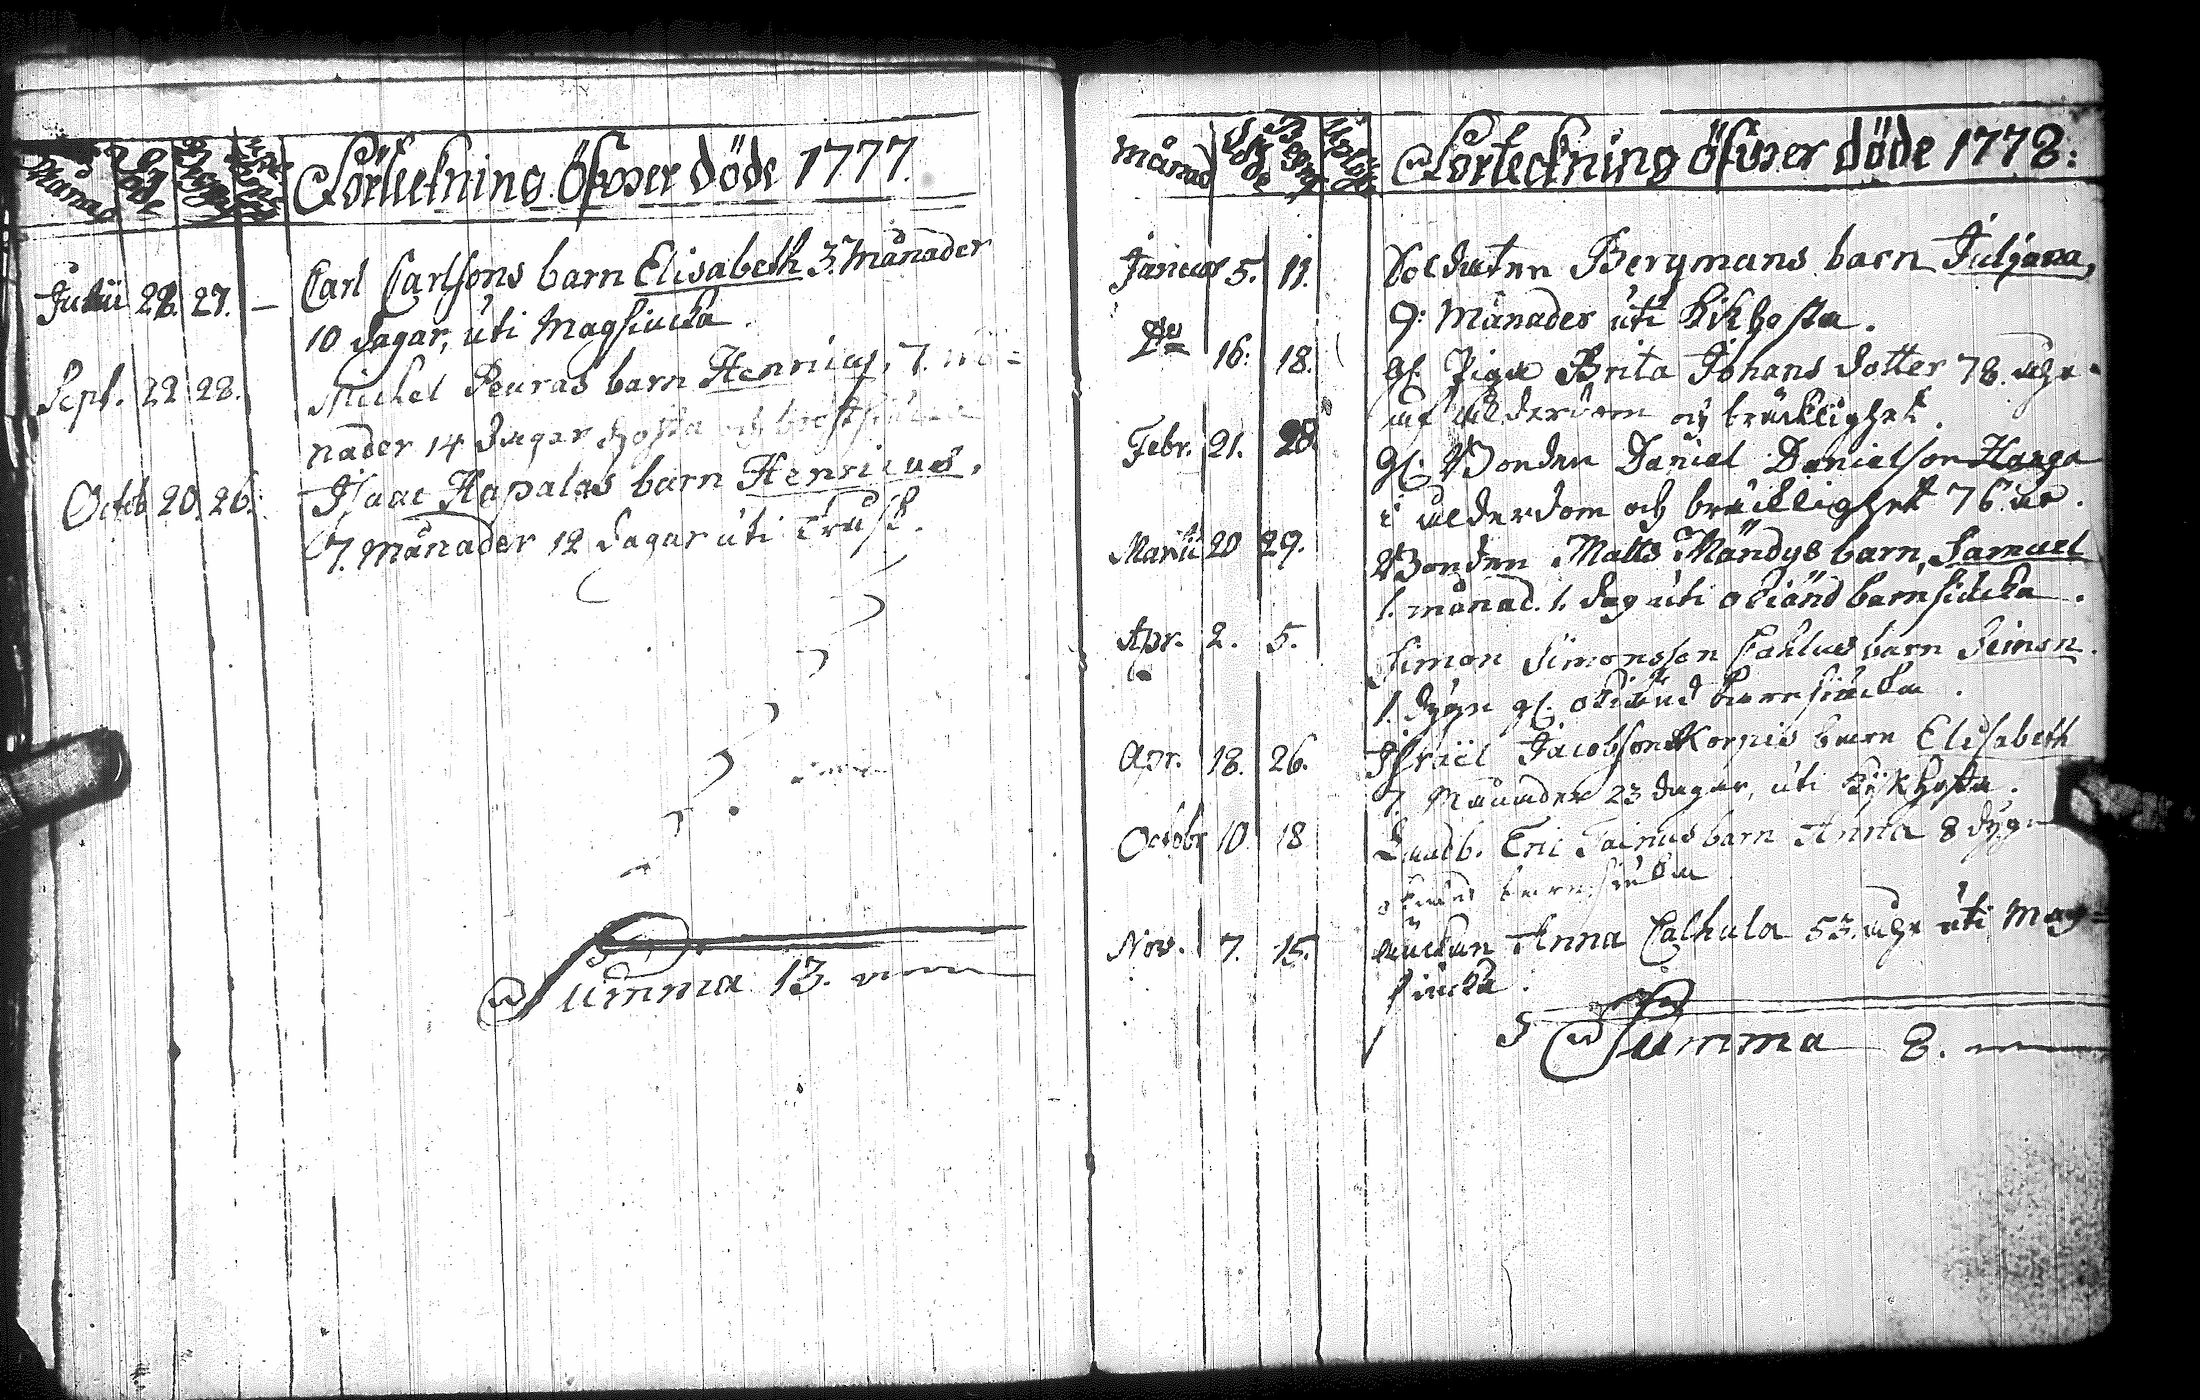 Månad döde Förteckning öfwer döde 1777.
Julii 28. 27. — Carl Carlsons barn Elisabeth 3. Månader
10 dagar, uti Magsiucka.
Sept. 22 28. Michel Peuras barn Henricus, 7. må=
nader 14 dagar hosta och bröstsiucka
Octob 20. 26. Isaac Hapalas barn Henricus,
7. Månader 12 dagar uti Tråsk.
Summa 13.
Månad döde Förteckning öfwer döde 1778:
Januar 5. 11. Soldaten Bergmans barn Juljana,
9: Månader uti Kikhosta.
Do 16. 18. gl. Pigu Brita Johans dotter 78. åhr
af ålderdom och bräcklighet.
Febr. 21. 28 gl. Bonden Daniel Danielson Hanga
i ålderdom och bräcklighet 76 år.
Martii 20 29. Bonden Matts Mändys barn, Samuel
1. månad. 1. dag uti okiänd barnsiucka.
Apr. 2. 5. Simon Simonsson barn Simon.
1. dygn gl. okiänd barnsiucka.
Apr. 18. 26. Israel Jacobson Korpis barn Elisabeth
7 Månader 23 dagar, uti Kykhosta.
Octobr 10. 18 Landb. Eric Tainus barn Anna 8 dygn
okiänd barnsiucka
Nov. 7. 15. Anna Calhula 53. åhr uti Mag=
siucka.
Summa 8.